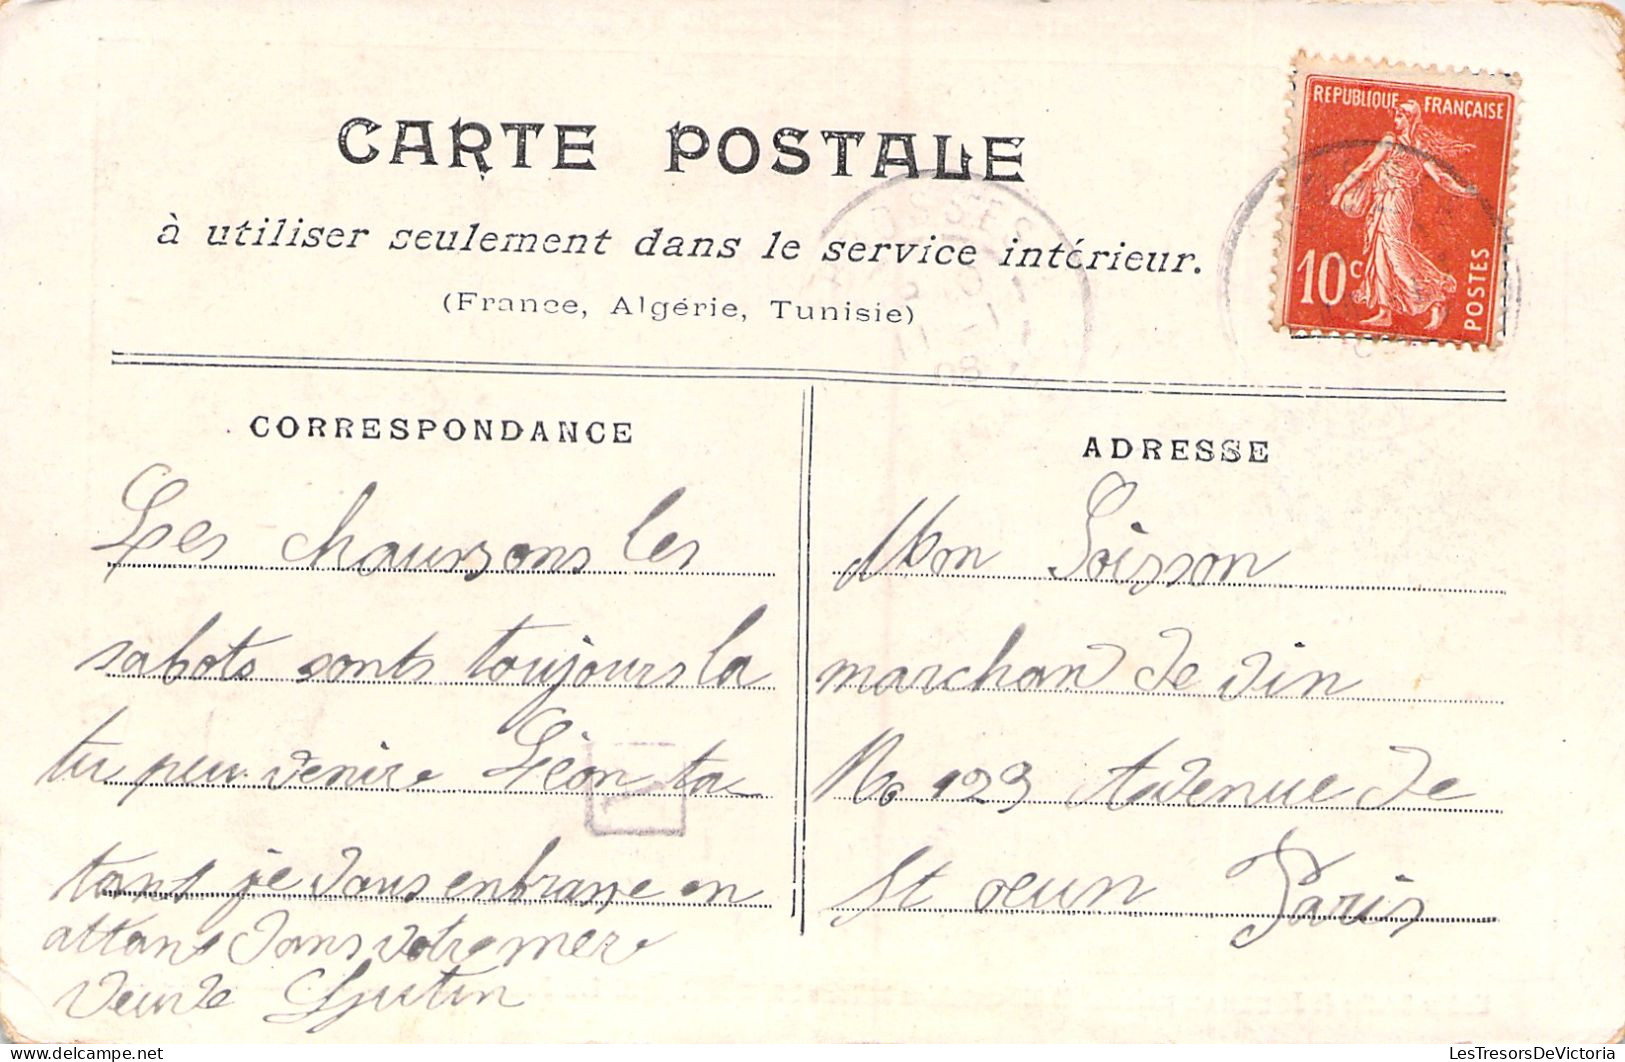 CARTE POSTALE
à utiliser seulement dans le service intérieur.
(France, Algérie, Tunisie)
REPUBLIQUE FRANÇAISE
10c
POSTES
OSSES
11 - 1
08
CORRESPONDANCE
Les chaussons les
sabots sonts toujours la
tu peu venire Léon ta
tant je vous enbrasse en
attant vous votre mere
veuve
ADRESSE
Mon Soisson
marchan de vin
No 123 Avenue de
St oeun Paris
LesTresorsDeVictoria